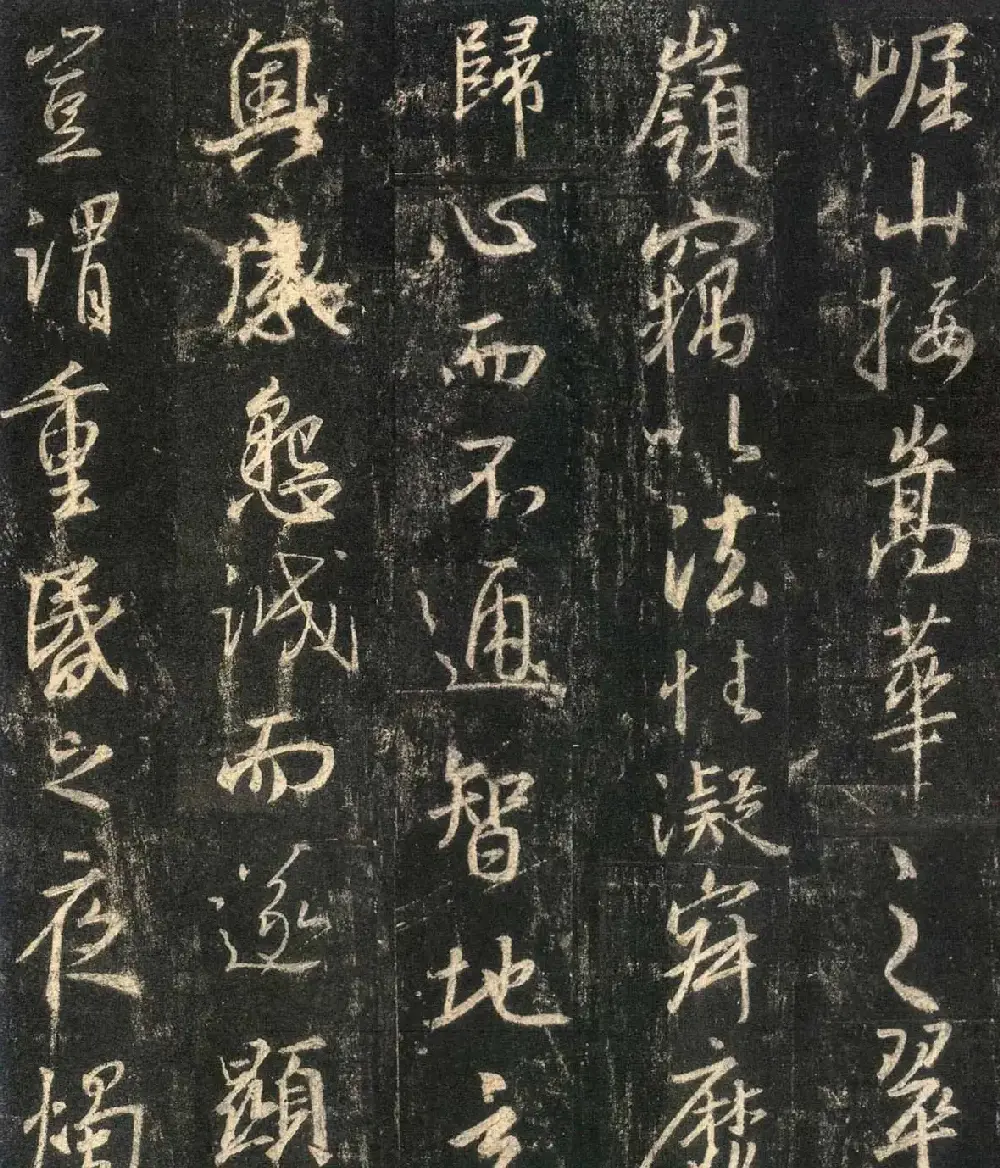 崛山接嵩華之翠
嶺竊以法性凝寂靡
歸心而不通智地玄
奥感懇誠而遂顯
豈謂重昏之夜燭